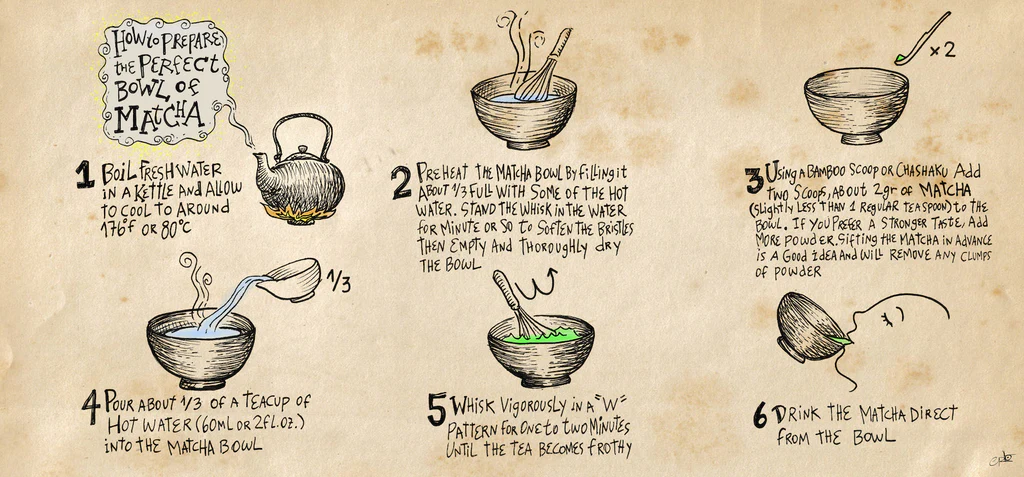 How to Prepare
the Perfect
Bowl of
Matcha
1 Boil fresh water
in a kettle and allow
to cool to around
176°F or 80°C
2 Preheat the matcha bowl by filling it
about 1/3 full with some of the hot
water. Stand the whisk in the water
for minute or so to soften the bristles
then empty and thoroughly dry
the bowl
x2
3 Using a bamboo scoop or chashaku add
two scoops, about 2gr of matcha
(slightly less than 1 regular teaspoon) to the
bowl. If you prefer a stronger taste, add
more powder. Sifting the matcha in advance
is a good idea and will remove any clumps
of powder
1/3
4 Pour about 1/3 of a teacup of
hot water (60ml or 2fl.oz.)
into the matcha bowl
W
5 Whisk vigorously in a "W"
pattern for one to two minutes
until the tea becomes frothy
6 Drink the matcha direct
from the bowl